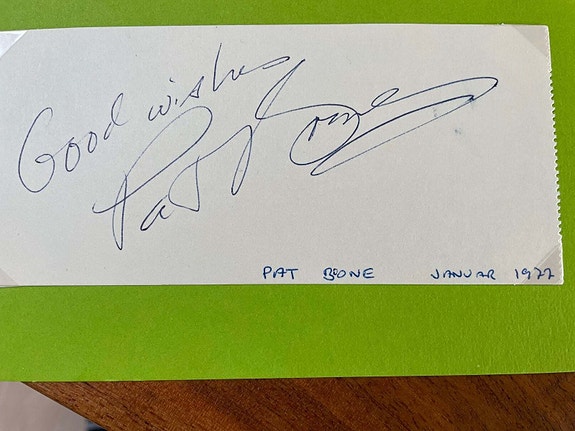 Good wishes
Pat Boone
PAT BOONE JANUAR 1977